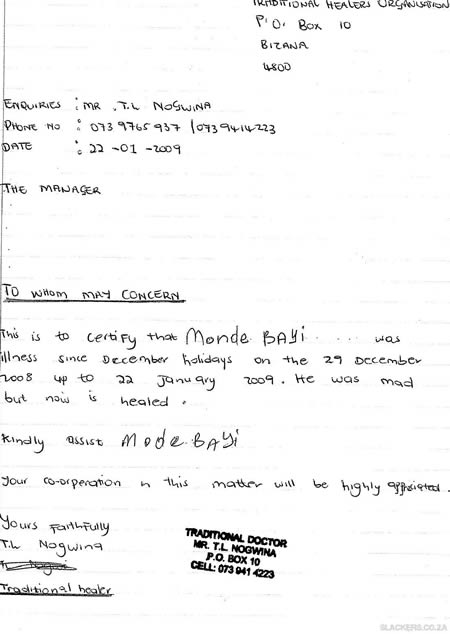 TRADITIONAL HEALERS ORGANISATION
P.O. Box 10
BIZANA
4800
ENQUIRIES : MR .T.L NOGWINA
PHONE NO : 073 9765 937 / 073 9414223
DATE : 22 -01 -2009
THE MANAGER
TO WHOM MAY CONCERN
This is to certify that Monde BAYi .... was
illness since December holidays on the 29 December
2008 up to 22 January 2009. He was mad
but now is healed.
Kindly assist Mode BAYi
Your co-orperation n this matter will be highly appriciated.
Yours Faithfully
T.L Nogwina
Traditional healer
TRADITIONAL DOCTOR
MR. T.L. NOGWINA
P.O. BOX 10
CELL: 073 941 4223
SLACKERS.CO.ZA